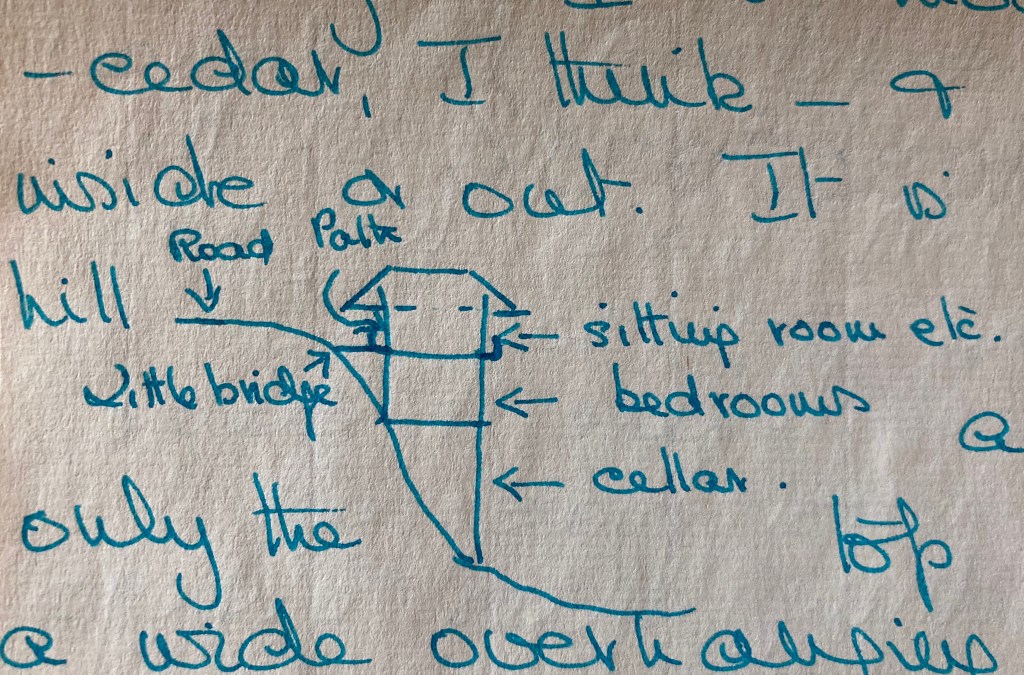 - cedar, I think - &
inside & out. It is
Road Path
hill
sitting room etc.
Little bridge
bedrooms
a
cellar.
only the top
a wide overhanging